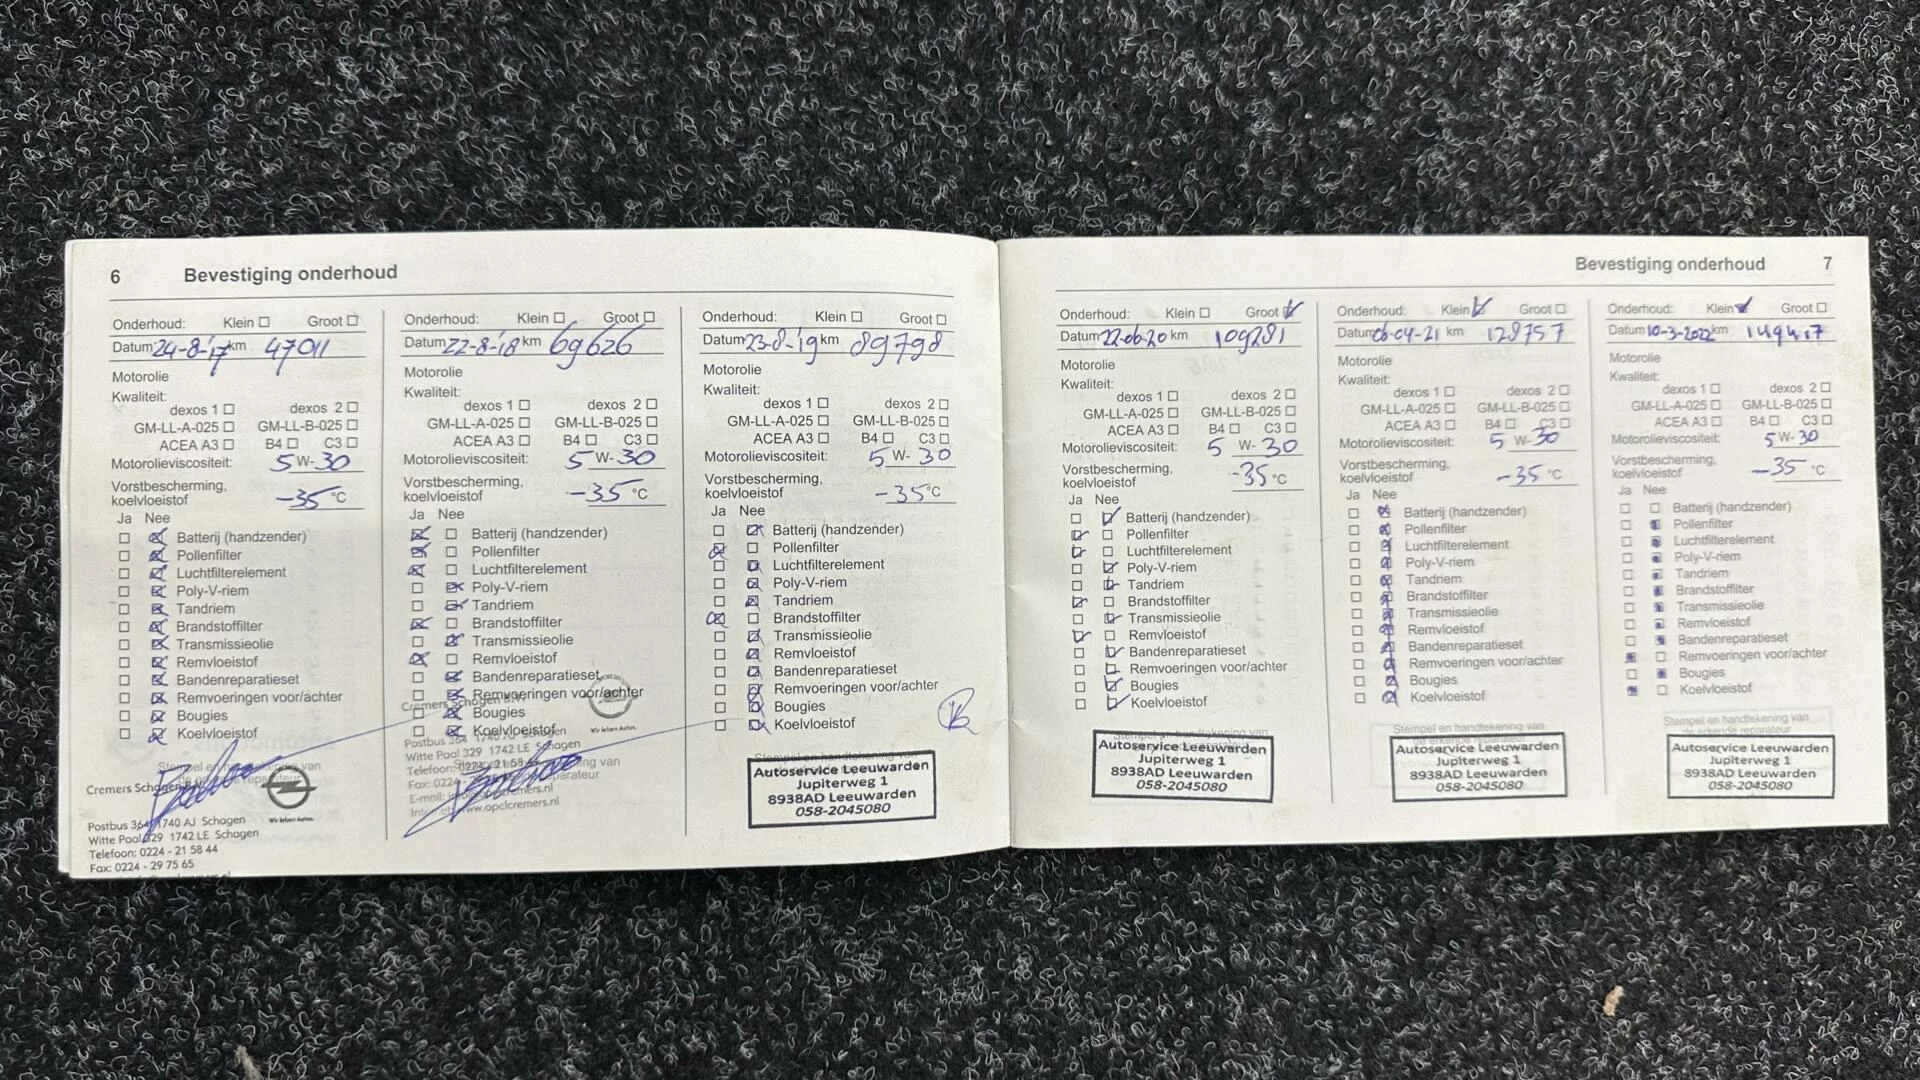 6 Bevestiging onderhoud
Onderhoud: Klein Groot
Datum 24-8-'17 km 47011
Motorolie
Kwaliteit:
dexos 1 dexos 2
GM-LL-A-025 GM-LL-B-025
ACEA A3 B4 C3
Motorolieviscositeit: 5 W- 30
Vorstbescherming,
koelvloeistof -35 °C
Ja Nee
Batterij (handzender)
Pollenfilter
Luchtfilterelement
Poly-V-riem
Tandriem
Brandstoffilter
Transmissieolie
Remvloeistof
Bandenreparatieset
Remvoeringen voor/achter
Bougies
Koelvloeistof
Stempel en handtekening van
de erkende reparateur
Cremers Schagen
Wir leben Autos.
Postbus 364 1740 AJ Schagen
Witte Paal 329 1742 LE Schagen
Telefoon: 0224 - 21 58 44
Fax: 0224 - 29 75 65
Onderhoud: Klein Groot
Datum 22-8-'18 km 69626
Motorolie
Kwaliteit:
dexos 1 dexos 2
GM-LL-A-025 GM-LL-B-025
ACEA A3 B4 C3
Motorolieviscositeit: 5 W- 30
Vorstbescherming,
koelvloeistof -35 °C
Ja Nee
Batterij (handzender)
Pollenfilter
Luchtfilterelement
Poly-V-riem
Tandriem
Brandstoffilter
Transmissieolie
Remvloeistof
Bandenreparatieset
Remvoeringen voor/achter
Cremers Schagen B.V.
Bougies
Koelvloeistof
Wir leben Autos.
Postbus 364 1740 AJ Schagen
Witte Paal 329 1742 LE Schagen
Telefoon: 0224 - 21 58 44
Fax: 0224
E-mail: info@opelcremers.nl
www.opelcremers.nl
Onderhoud: Klein Groot
Datum 23-8-'19 km 89798
Motorolie
Kwaliteit:
dexos 1 dexos 2
GM-LL-A-025 GM-LL-B-025
ACEA A3 B4 C3
Motorolieviscositeit: 5 W- 30
Vorstbescherming,
koelvloeistof -35 °C
Ja Nee
Batterij (handzender)
Pollenfilter
Luchtfilterelement
Poly-V-riem
Tandriem
Brandstoffilter
Transmissieolie
Remvloeistof
Bandenreparatieset
Remvoeringen voor/achter
Bougies
Koelvloeistof
Stempel en handtekening van
Autoservice Leeuwarden
Jupiterweg 1
8938AD Leeuwarden
058-2045080
Bevestiging onderhoud 7
Onderhoud: Klein Groot
Datum 22-06-20 km 109281
Motorolie
Kwaliteit:
dexos 1 dexos 2
GM-LL-A-025 GM-LL-B-025
ACEA A3 B4 C3
Motorolieviscositeit: 5 W- 30
Vorstbescherming,
koelvloeistof -35 °C
Ja Nee
Batterij (handzender)
Pollenfilter
Luchtfilterelement
Poly-V-riem
Tandriem
Brandstoffilter
Transmissieolie
Remvloeistof
Bandenreparatieset
Remvoeringen voor/achter
Bougies
Koelvloeistof
Stempel en handtekening van
Autoservice Leeuwarden
Jupiterweg 1
8938AD Leeuwarden
058-2045080
Onderhoud: Klein Groot
Datum 06-04-21 km 128757
Motorolie
Kwaliteit:
dexos 1 dexos 2
GM-LL-A-025 GM-LL-B-025
ACEA A3 B4 C3
Motorolieviscositeit: 5 W- 30
Vorstbescherming,
koelvloeistof -35 °C
Ja Nee
Batterij (handzender)
Pollenfilter
Luchtfilterelement
Poly-V-riem
Tandriem
Brandstoffilter
Transmissieolie
Remvloeistof
Bandenreparatieset
Remvoeringen voor/achter
Bougies
Koelvloeistof
Stempel en handtekening van
Autoservice Leeuwarden
Jupiterweg 1
8938AD Leeuwarden
058-2045080
Onderhoud: Klein Groot
Datum 10-3-2022 km 149417
Motorolie
Kwaliteit:
dexos 1 dexos 2
GM-LL-A-025 GM-LL-B-025
ACEA A3 B4 C3
Motorolieviscositeit: 5 W- 30
Vorstbescherming,
koelvloeistof -35 °C
Ja Nee
Batterij (handzender)
Pollenfilter
Luchtfilterelement
Poly-V-riem
Tandriem
Brandstoffilter
Transmissieolie
Remvloeistof
Bandenreparatieset
Remvoeringen voor/achter
Bougies
Koelvloeistof
Stempel en handtekening van
de erkende reparateur
Autoservice Leeuwarden
Jupiterweg 1
8938AD Leeuwarden
058-2045080